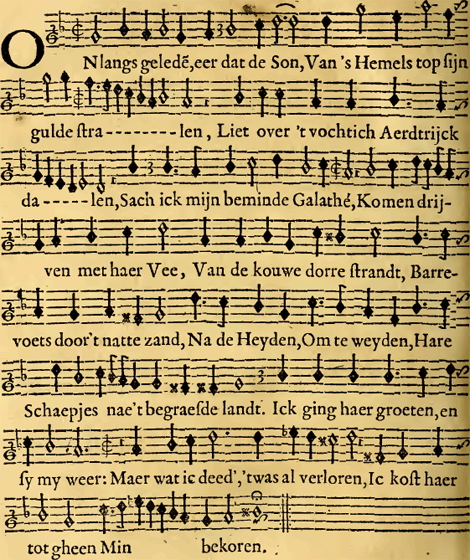 ONlangs geledē, eer dat de Son, Van 's Hemels top ſijn
gulde ſtra - - - - - - - - len, Liet over 't vochtich Aerdtrijck
da - - - - len, Sach ick mijn beminde Galathé, Komen drij-
ven met haer Vee, Van de kouwe dorre ſtrandt, Barre-
voets door't natte zand, Na de Heyden, Om te weyden, Hare
Schaepjes nae't begraeſde landt. Ick ging haer groeten, en
ſy my weer: Maer wat ic deed', 'twas al verloren, Ic koſt haer
tot gheen Min bekoren.